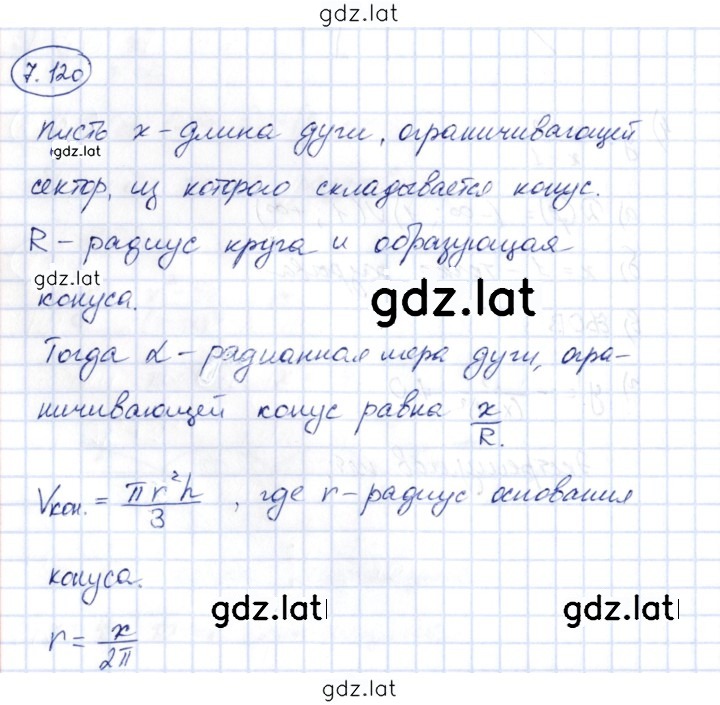 gdz.lat
7.120
Пусть x - длина дуги, ограничивающей
gdz.lat
сектор, из которого складывается конус.
R - радиус круга и образующая
gdz.lat
конуса.
gdz.lat
Тогда α - радианная мера дуги, огра-
ничивающей конус равна x/R.
Vкон. = πr²h/3, где r - радиус основания
конуса.
gdz.lat gdz.lat
r = x/2π
gdz.lat